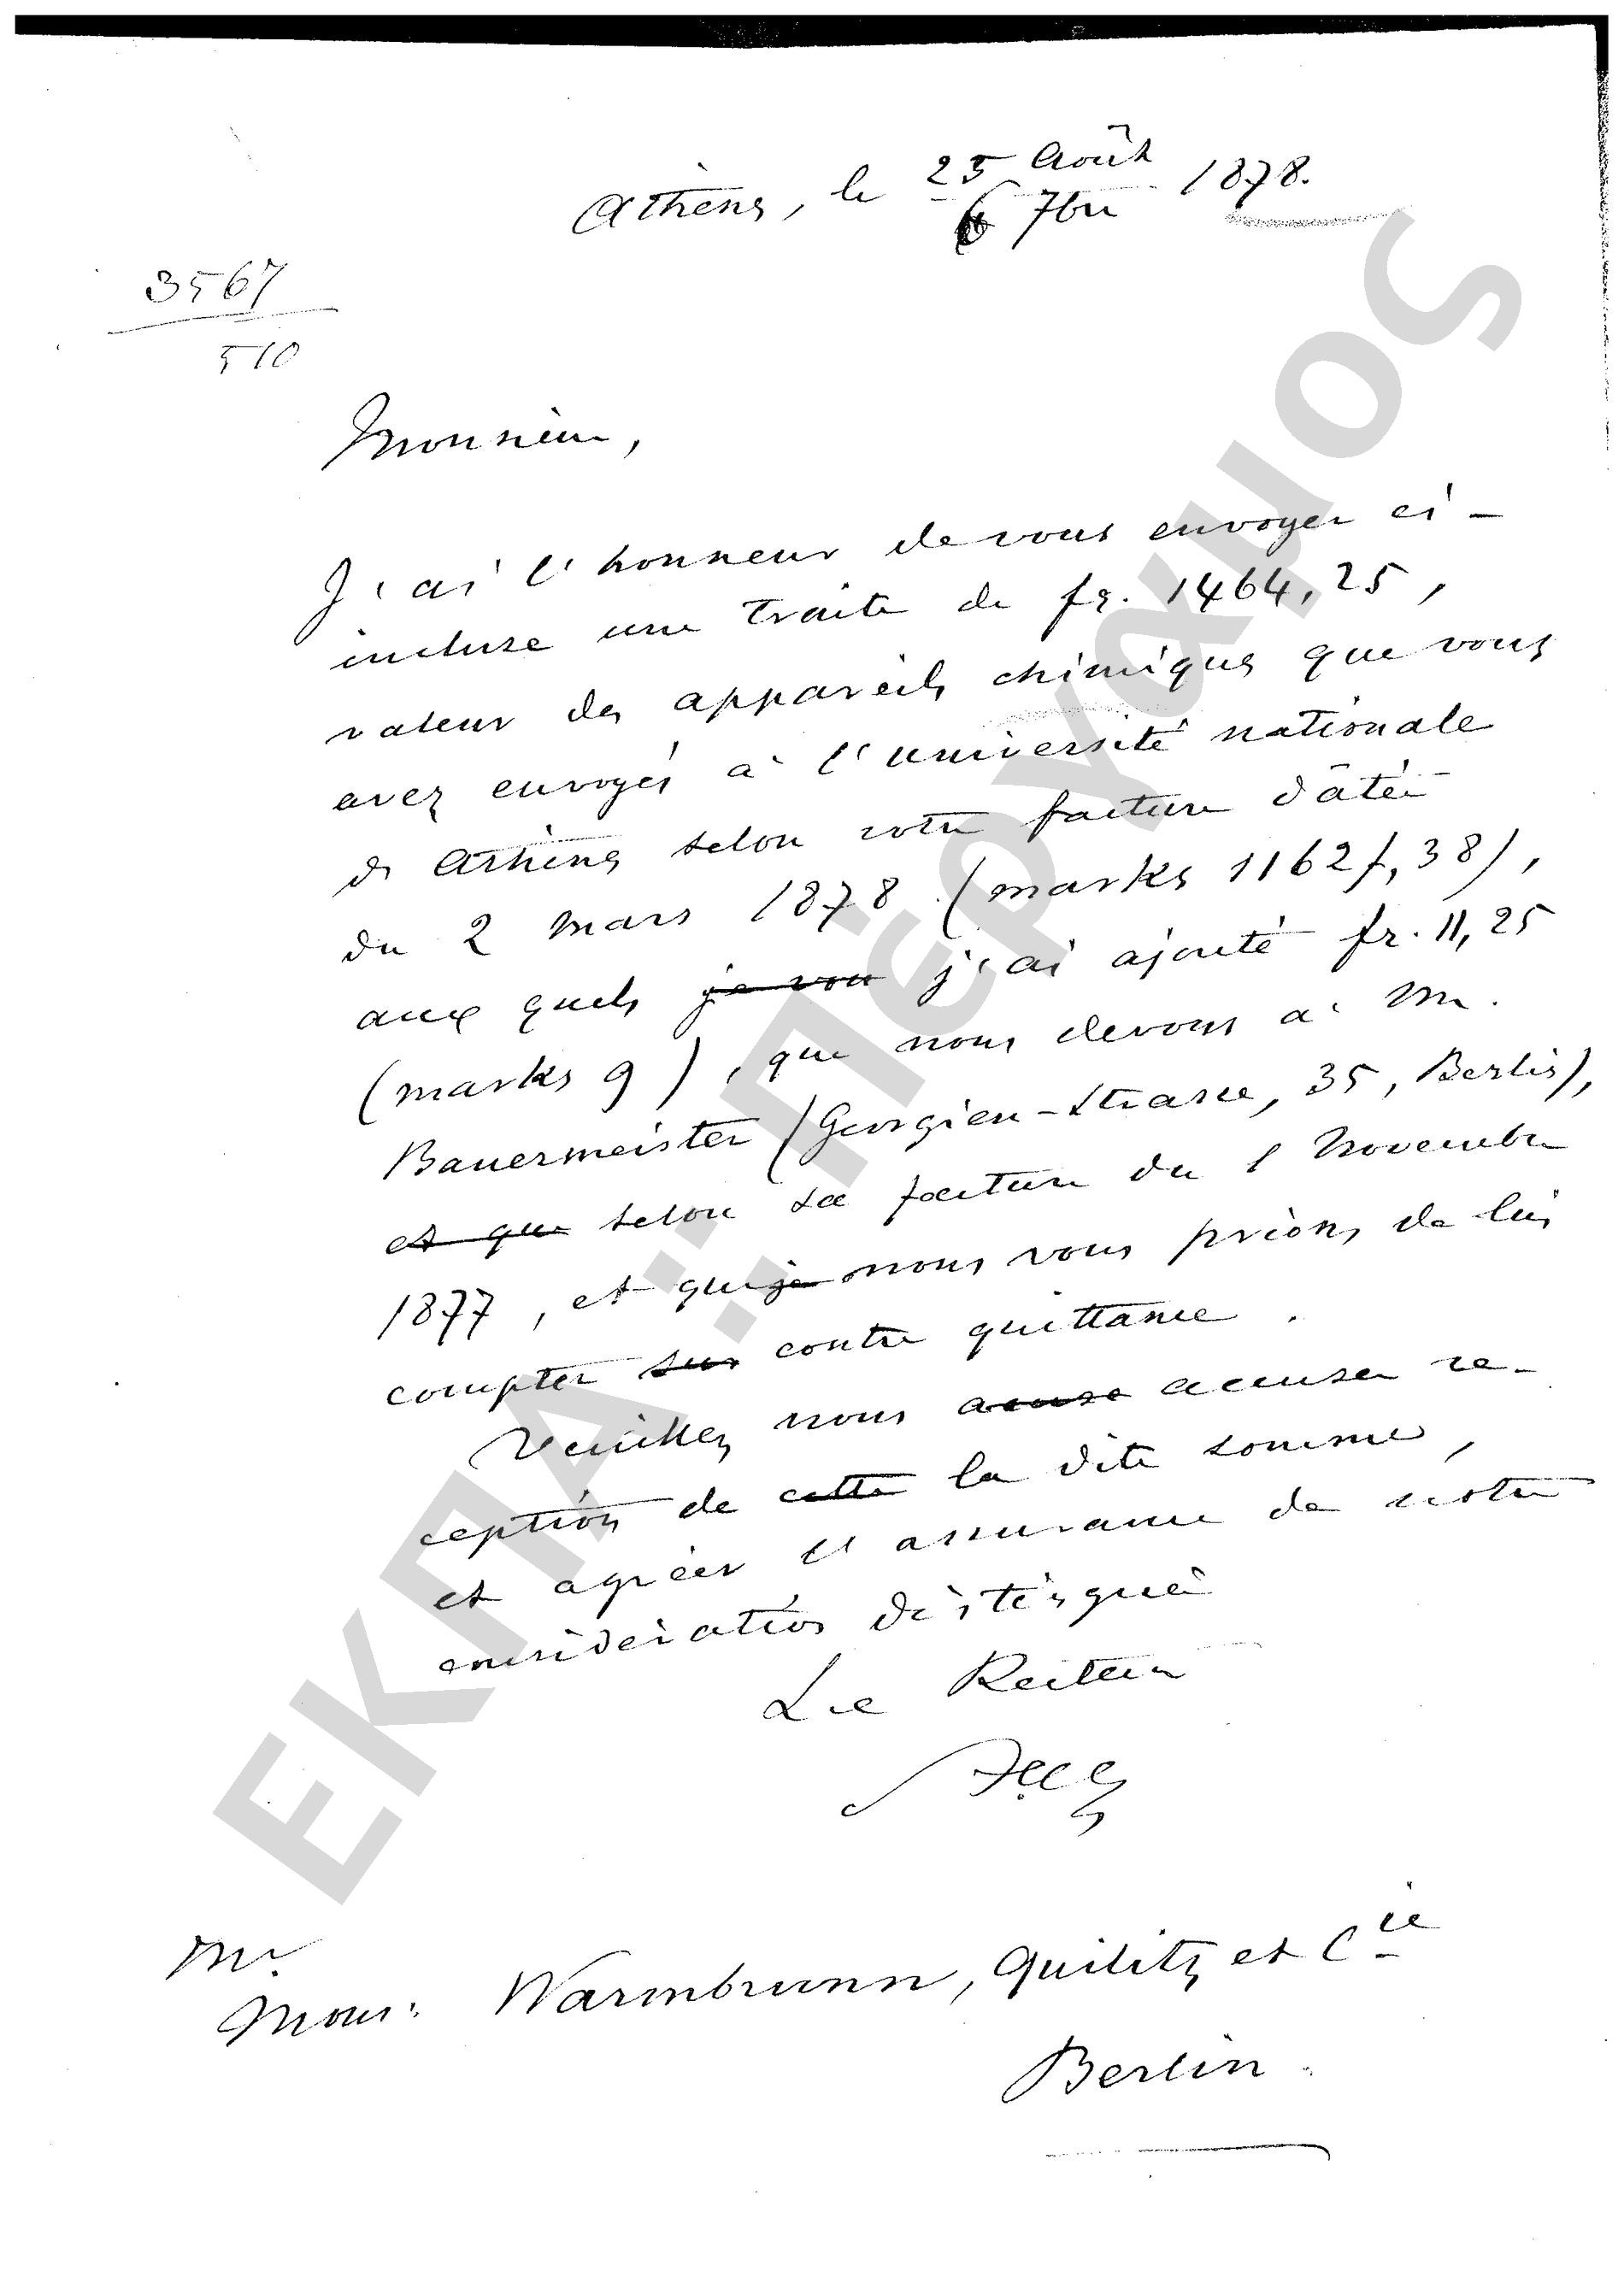 Athènes, le 25 Août 1878.
6 7bre
3567
510
Monsieur,
J'ai l'honneur de vous envoyer ci-
incluse une traite de fr. 1464,25,
valeur des appareils chimiques que vous
avez envoyés à l'université nationale
d' Athènes selon votre facture dâtée
du 2 mars 1878 (marks 1162, 38),
aux quels je vou j'ai ajouté fr. 11,25
(marks 9), que nous devons à M.
Bauermeister (Georgien-strasse, 35, Berlin),
et que selon sa facture du 1 Novembre
1877, et que je nous vous prions de lui
compter sur contre quittance.
Veuillez nous acuse accuser ré-
ception de cette la dite somme,
et agréer l'assurance de notre
considération distinguée
Le Recteur
Mr.
Mons: Warmbrunn, Quilitz et Cie
Berlin.
ΕΚΠΑ: Πέργαμος